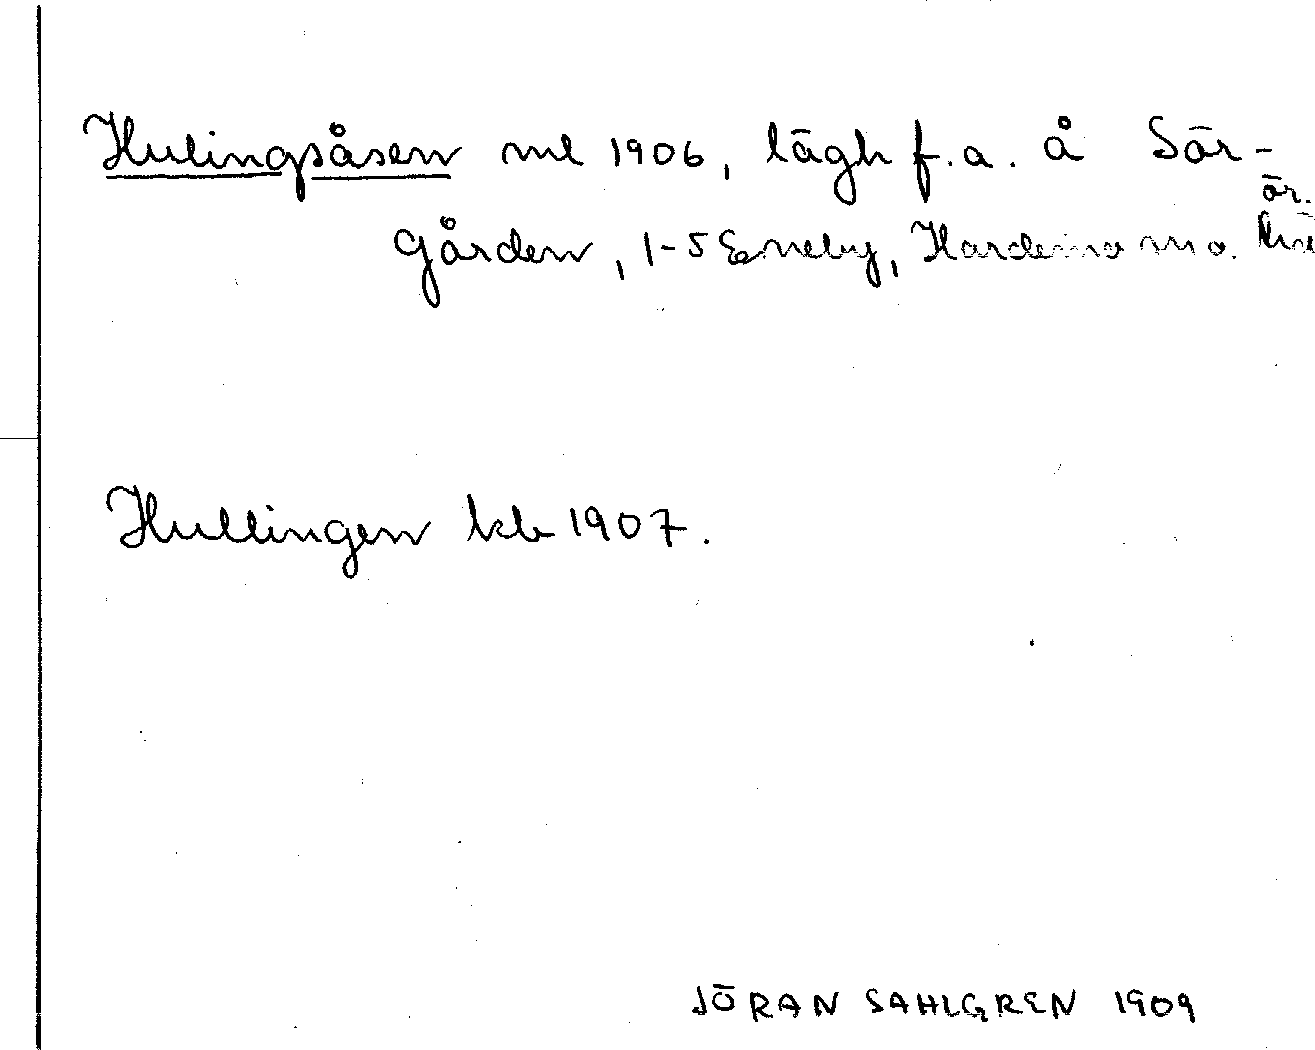 Hulingsåsen ml 1906, lägh f.a. å Sör-
gården, 1-5 Eneby, Hardemo sn o. hd
ör.
Hullingen kb 1907.
JÖRAN SAHLGREN 1909